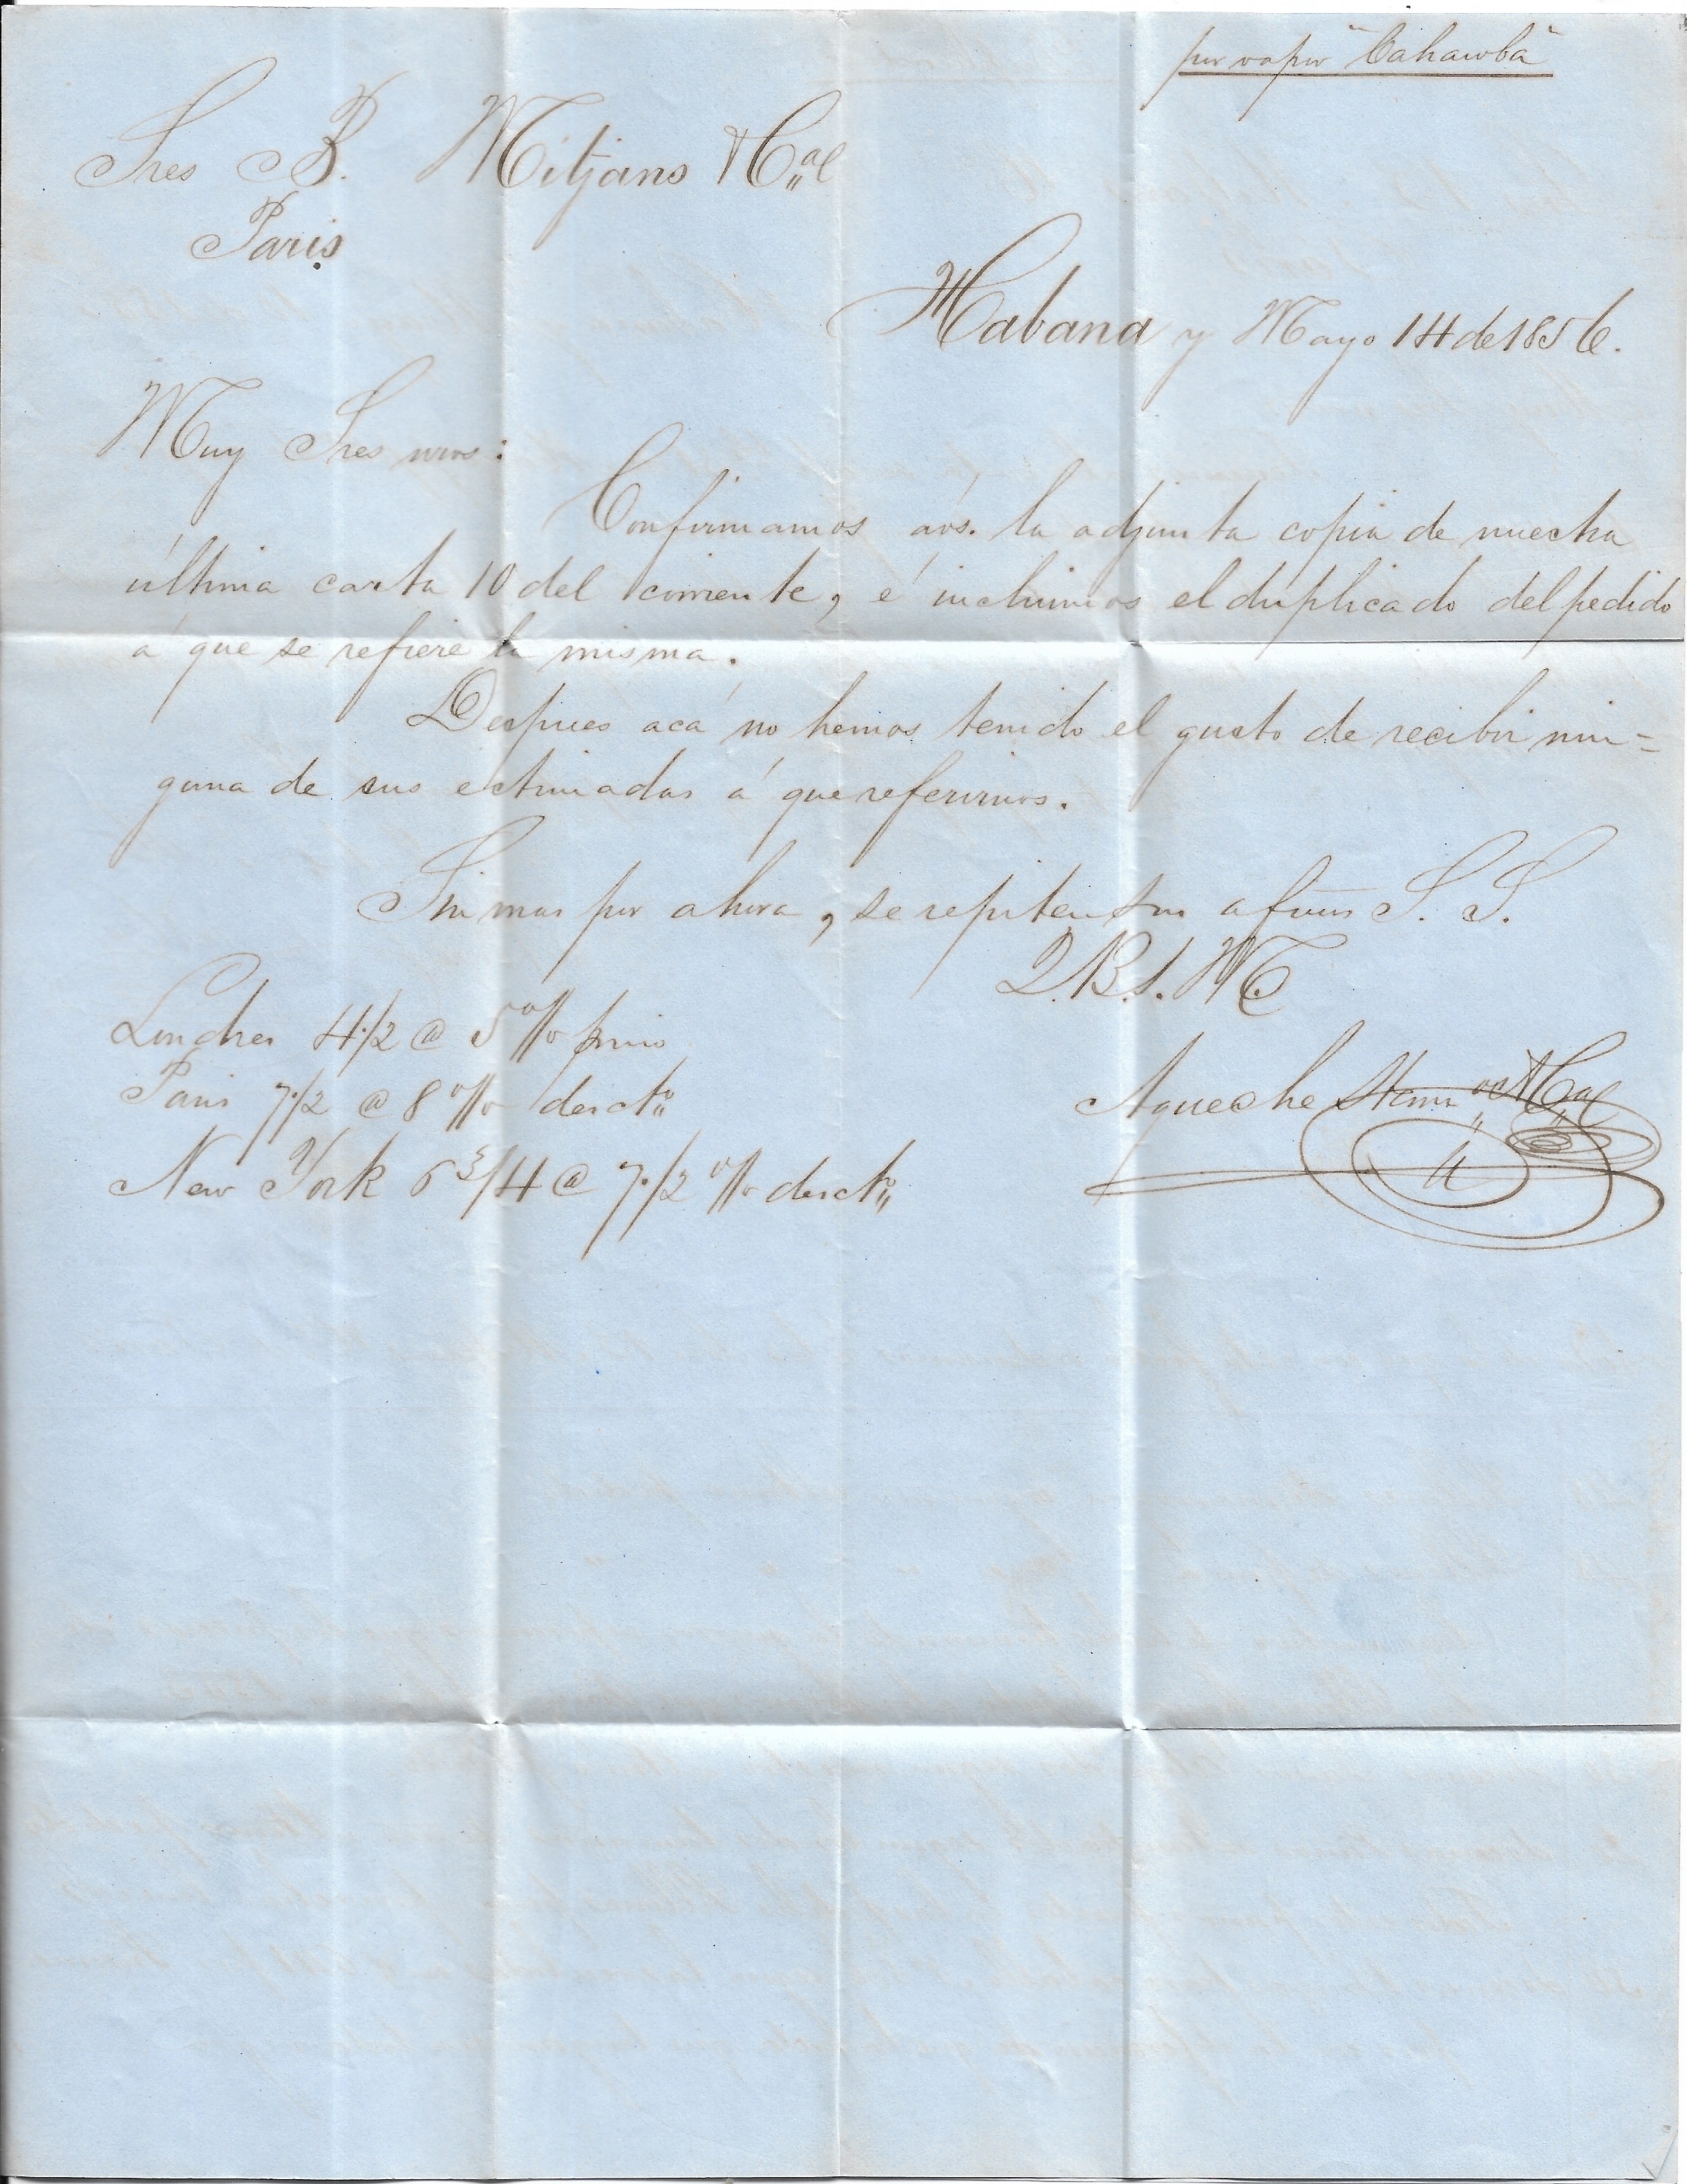 por vapor "Cahawba"
Sres B. Mitjans & Cª
Paris
Habana y Mayo 14 de 1856.
Muy Sres nros:
Confirmamos á vs. la adjunta copia de nuestra
última carta 10 del corriente, é incluimos el duplicado del pedido
á que se refiere la misma.
Despues acá no hemos tenido el gusto de recibir nin=
guna de sus estimadas á que referirnos.
Sin mas por ahora, se repiten sus afmos S. S.
Q. B. S. M.
Londres 4 1/2 @ 5 o/o prmio
Paris 7 1/2 @ 8 o/o descto
New York 6 3/4 @ 7 1/2 o/o descto